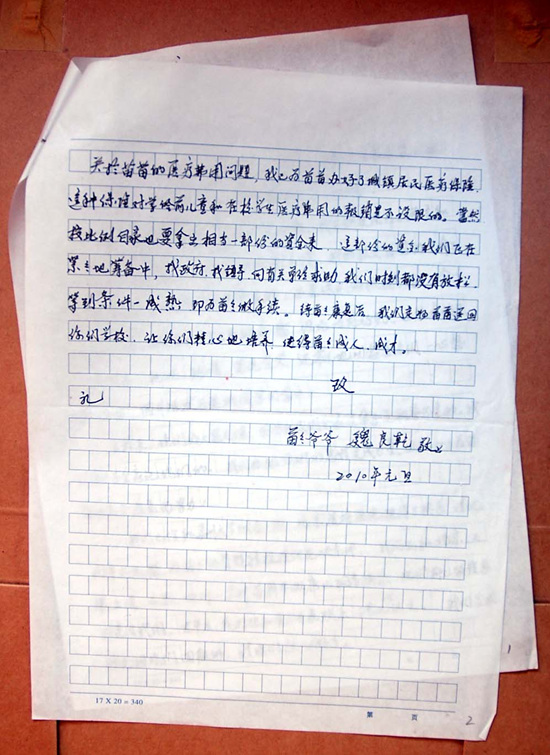 关于苗苗的医疗费用问题，我已为苗苗办好了城镇居民医疗保险，
这种保险对学龄前儿童和在校学生医疗费用的报销是不设限的。当然
按比例自家也要拿出相当一部份的资金来，这部份的资金我们正在
紧紧地筹备中，找政府，找领导，向有关单位求助，我们时刻都没有放松，
等到条件一成熟，即为苗苗做手续。待苗苗康复后，我们定把苗苗送回
你们学校，让你们精心地培养，使得苗苗成人，成才。
致
礼
苗苗爷爷 魏良乾 敬上
2010年元旦
17 X 20 = 340
第 页
2
1